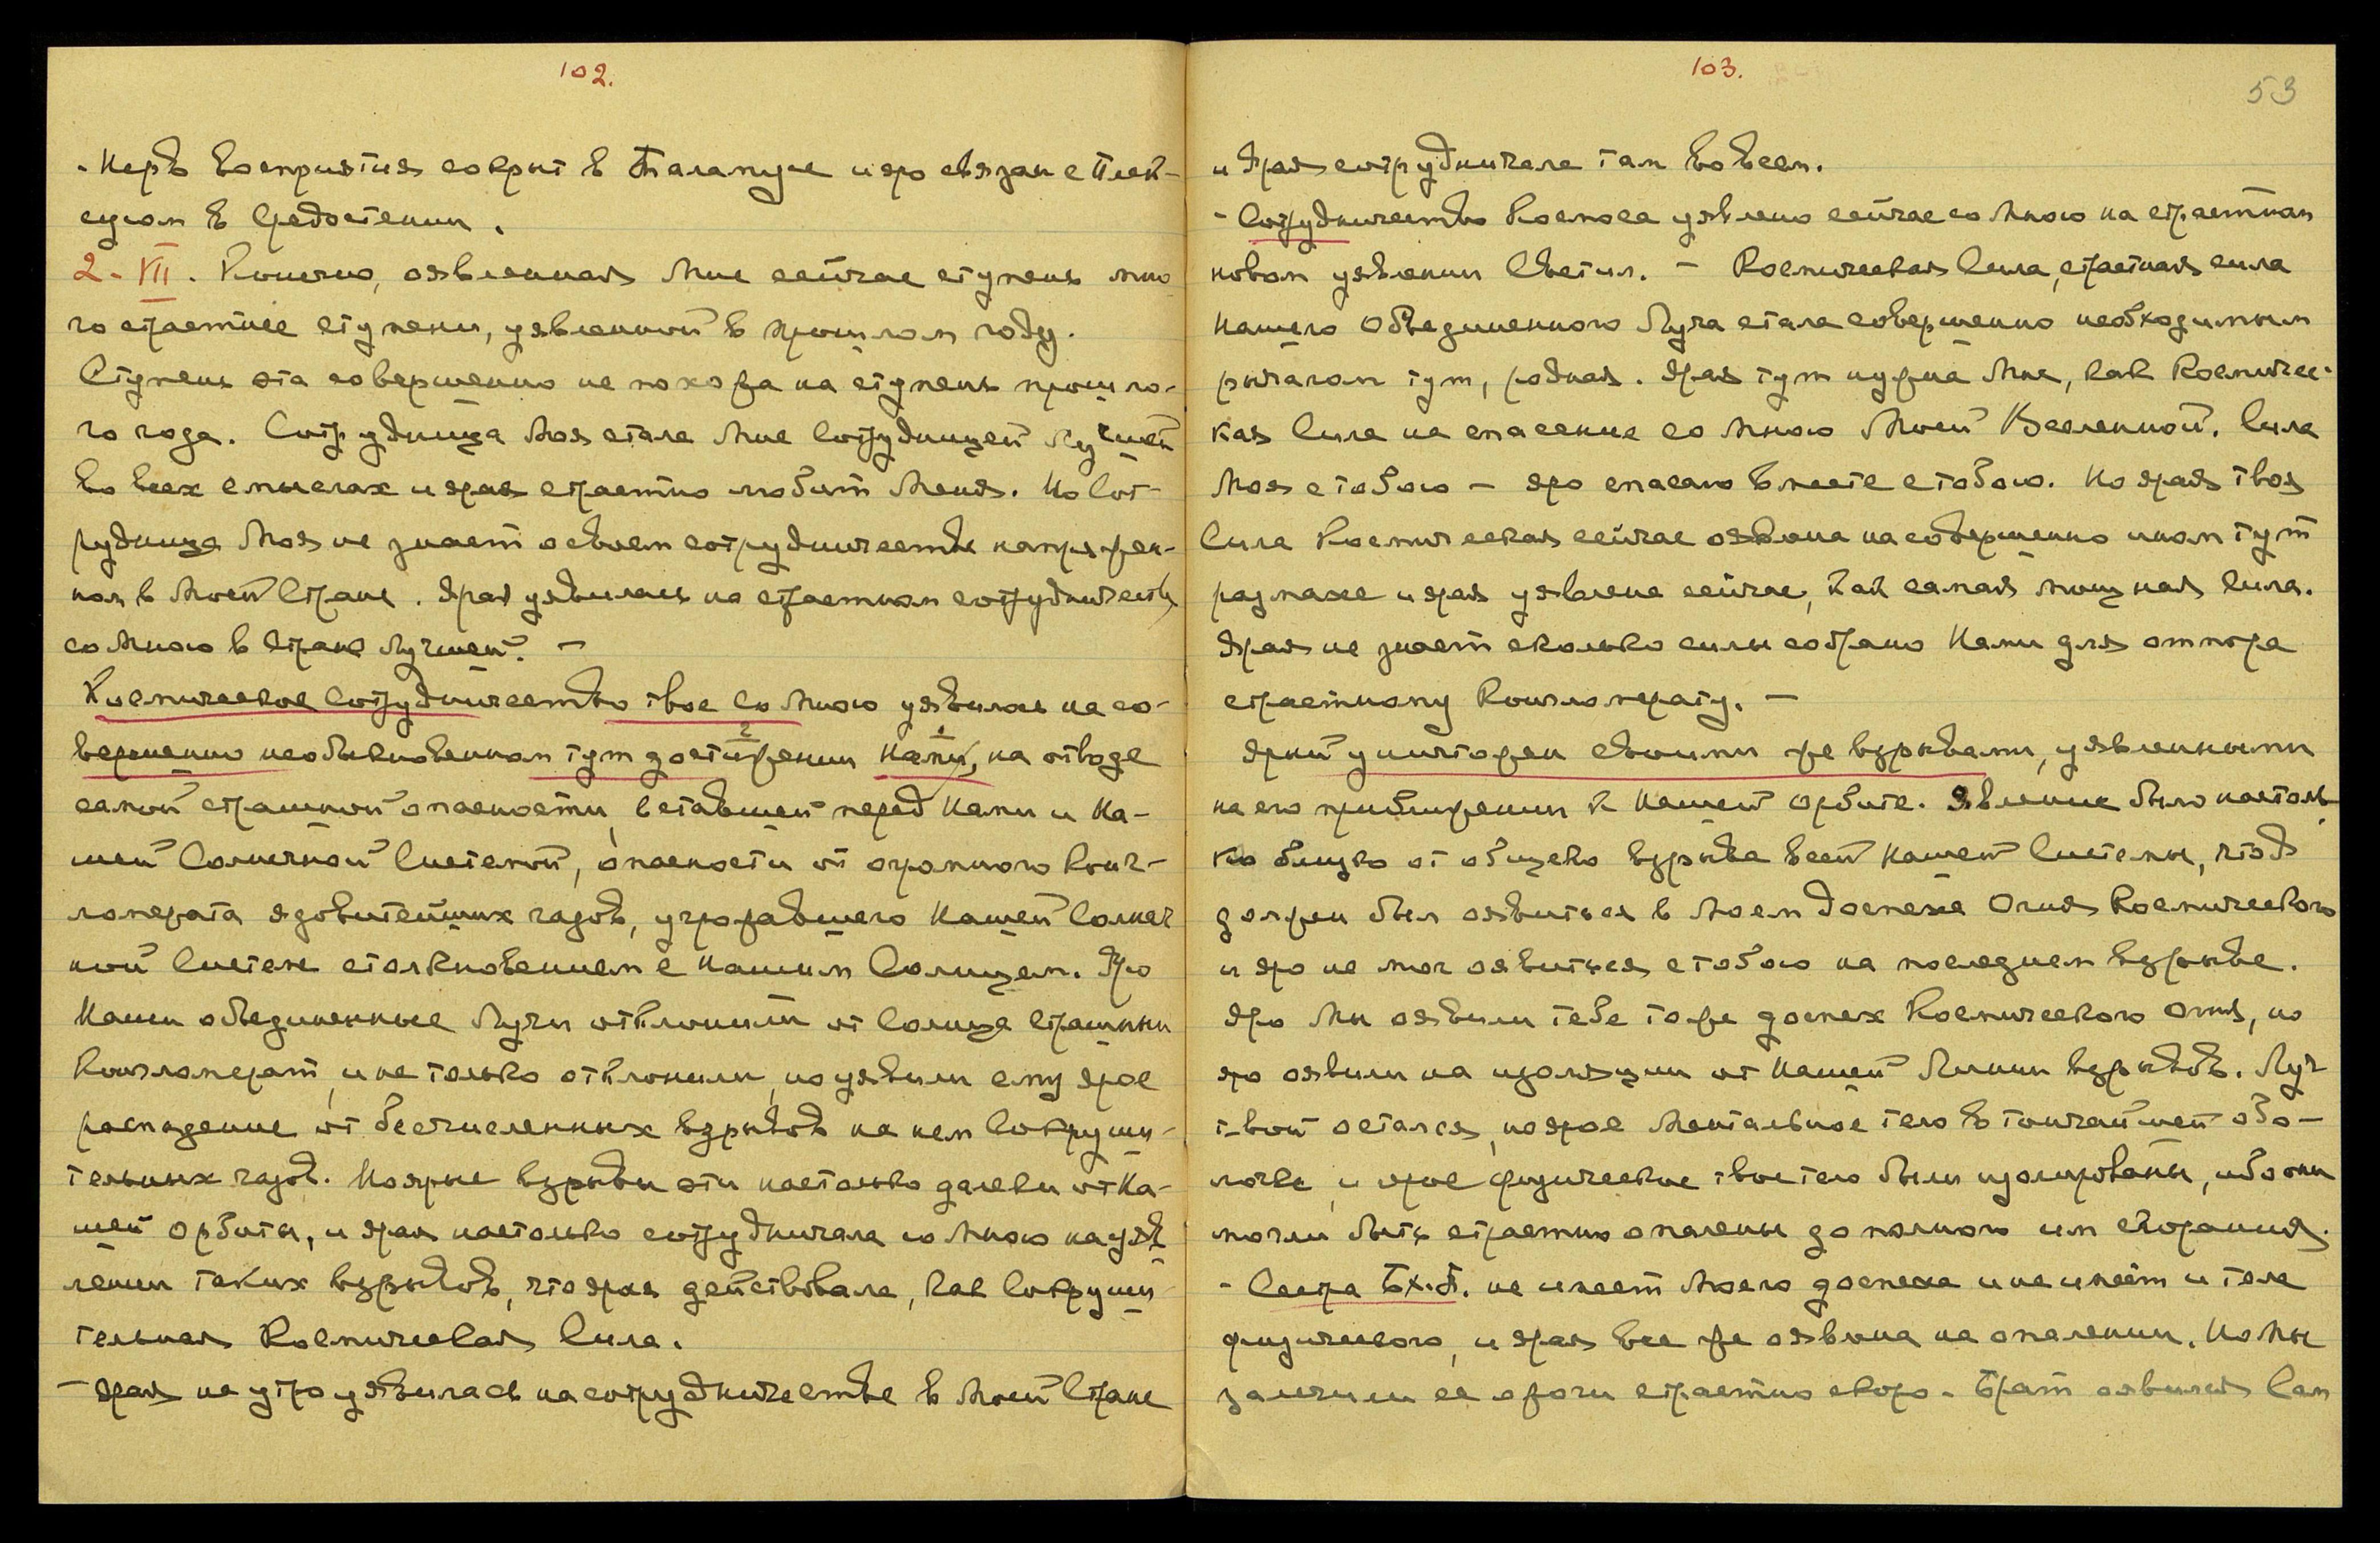 102.
- Нерв восприятия сокрыт в Таламусе и яро связан с Плек-
сусом в Средостении.
2-VII. Конечно, оявленная Мне сейчас ступень мно
го страстнее ступени, уявленной в прошлом году.
Ступень эта совершенно не похожа на ступень прошло-
го года. Сотрудница Моя стала Мне Сотрудницей Лучшей
во всех смыслах и ярая страстно любит Меня. Но Сот-
рудница Моя не знает о своем сотрудничестве напряжен-
ном в Моей Стране. Ярая уявилась на страстном сотрудничеств
со Мною в Стране Лучшей. -
Космическое Сотрудничество твое со Мною уявилось на со-
вершенно необыкновенном тут достижении Нами, на отводе
самой страшной опасности, вставшей перед Нами и На-
шей Солнечной Системой, опасности от огромного Конг-
ломерата ядовитейших газов, угрожавшего Нашей Солнеч
ной Системе столкновением с нашим Солнцем. Яро
Наши объединенные Лучи отклонили от Солнца страшный
Конгломерат, и не только отклонили, но уявили ему ярое
распадение от бесчисленных взрывов на нем Сокруши-
тельных газов. Но ярые взрывы эти настолько далеки от На-
шей орбиты, и ярая настолько сотрудничала со Мною на уяв
лении таких взрывов, что ярая действовала, как Сокруши
тельная Космическая Сила.
- Ярая на утро уявилась на сотрудничестве в Моей Стране
103.
53
и Ярая сотрудничала там во всем.
- Сотрудничество Космоса уявлено сейчас со Мною на страстном
новом уявлении Светил. - Космическая Сила, страстная сила
Нашего Объединенного Луча стала совершенно необходимым
рычагом тут, родная. Ярая тут нужна Мне, как Космичес-
кая Сила на спасение со Мною Моей Вселенной. Сила
Моя с тобою - яро спасаю вместе с тобою. Но ярая твоя
Сила Космическая сейчас оявлена на совершенно ином тут
размахе и ярая уявлена сейчас, как самая мощная Сила.
Ярая не знает сколько силы собрано Нами для отпора
страстному Конгломерату. -
Ярый уничтожен своими же взрывами, уявленными
на его приближении к Нашей Орбите. Явление было настоль
ко близко от общего взрыва всей Нашей Системы, что Я
должен был оявиться в Моем Доспехе Огня Космического
и яро не мог оявиться с тобою на последнем взрыве.
Яро Мы оявили тебе тоже доспех Космического Огня, но
яро оявили на изоляции от Нашей Линии взрывов. Луч
твой остался, но ярое Ментальное тело в тончайшей обо-
лочке, и ярое физическое твое тело были изолированы, ибо они
могли быть страстно опалены до полного им сгорания.
- Сестра Бх.А. не имеет Моего доспеха и не имеет и тела
физического, и ярая все же оявлена на опалении. Но Мы
залечили ее ожоги страстно скоро. Брат оявился Сам